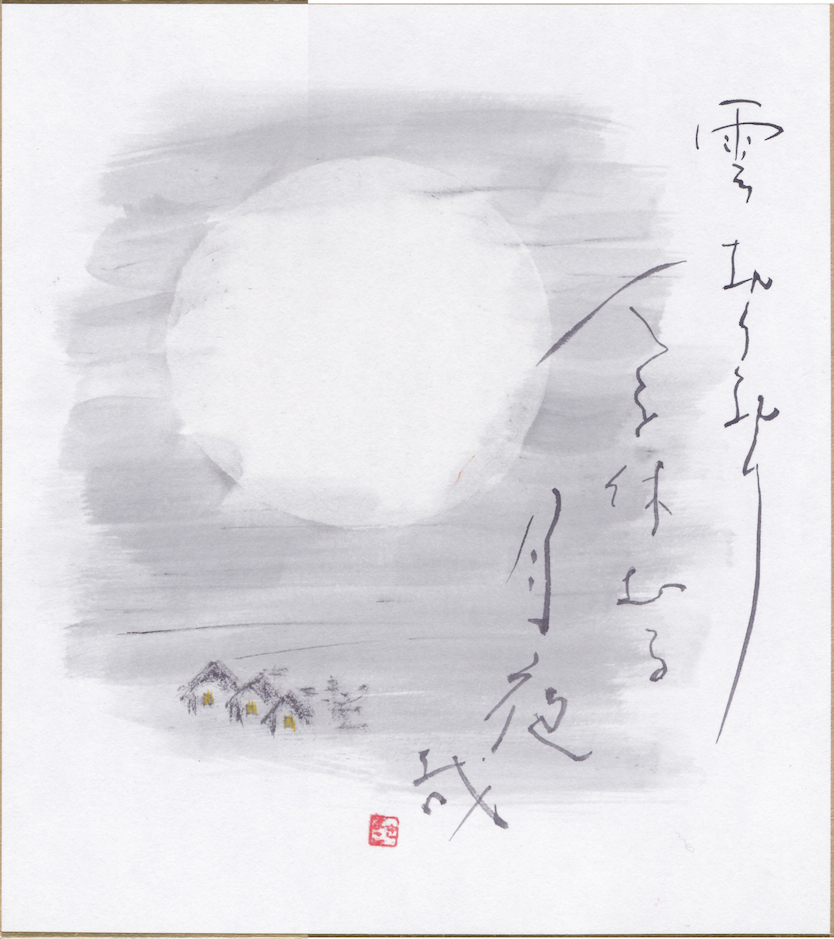 雲をりをり
人を休むる
月夜哉